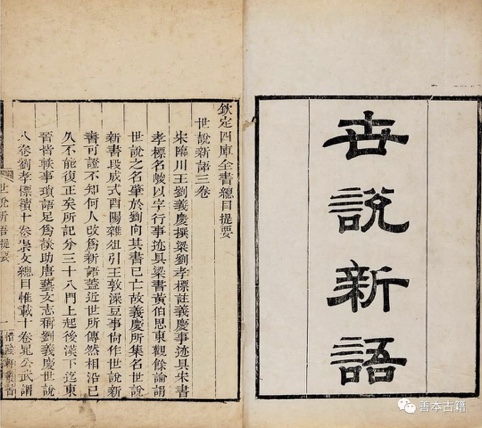 世說新語
欽定四庫全書總目提要
世說新語三卷
宋臨川王劉義慶撰梁劉孝標註義慶事迹具宋書
孝標名峻以字行事迹具梁書黃伯思東觀餘論謂
世說之名肇於劉向其書已亡故義慶所集名世說
新書段成式酉陽雜俎引王敦澡豆事尚作世說新
書可證不知何人改為新語蓋近世所傳然相沿已
久不能復正矣所記分三十八門上起後漢下迄東
晉皆軼事瑣語足為談助唐藝文志稱劉義慶世說
八卷劉孝標續十卷崇文總目惟載十卷晁公武謂
世說新語提要
一
善本古籍